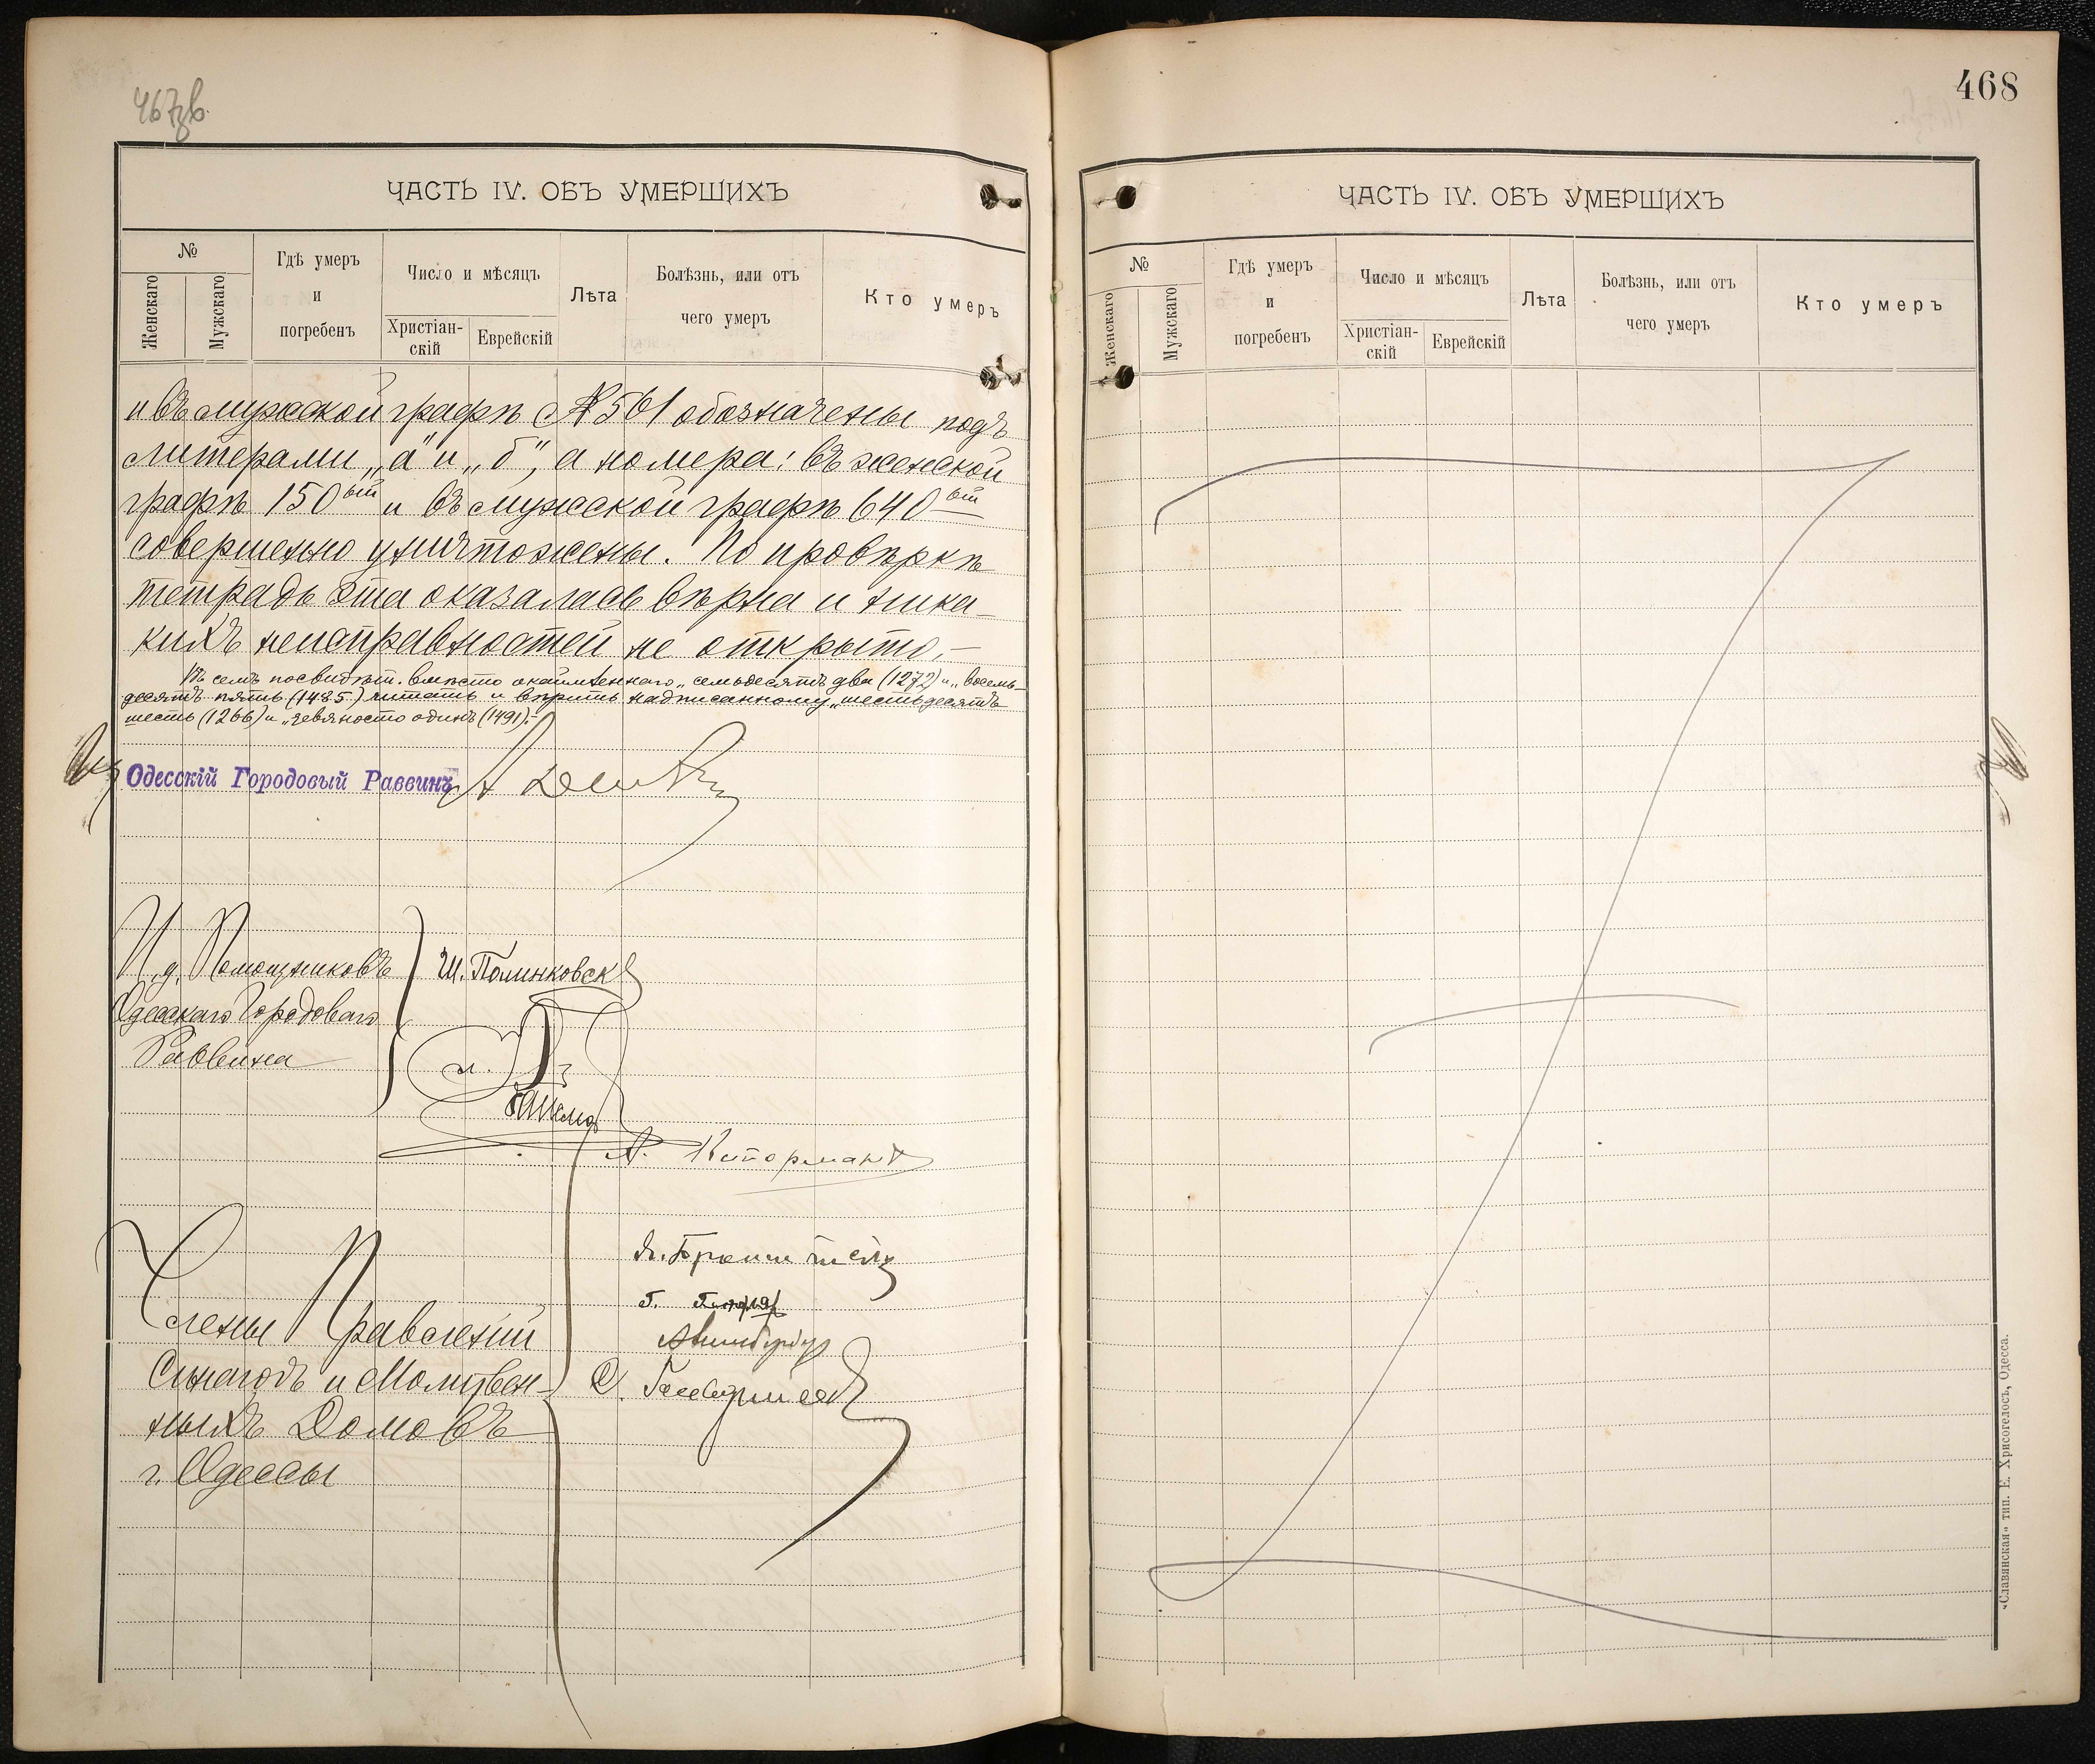 467об.
ЧАСТЬ IV. ОБЪ УМЕРШИХЪ
№
Женскаго
Мужскаго
Гдѣ умеръ
и
погребенъ
Число и мѣсяцъ
Христіан-
скій
Еврейскій
Лѣта
Болѣзнь, или отъ
чего умеръ
Кто умеръ
и въ мужской графѣ №561 обозначены подъ
литерами „а" и „б", а номера: въ женской
графѣ 150ый и въ мужской графѣ 640ый
совершенно уничтожены. По провѣркѣ
тетрадь эта оказалась вѣрна и ника-
кихъ неисправностей не открыто.-
семъ вмѣсто „семьдесятъ два (1272) и „восемь-
десятъ пять (1485) читать и вѣрить надписанному „шестьдесятъ
шесть (1266) и „девяносто одинъ (1491).-
Одесскій Городовый Раввинъ
И. д. Помощниковъ
Одесскаго Городоваго
Раввина
Ш. Полинковск
А.
Члены Правленій
Синагогъ и Молитвен-
ныхъ Домовъ
г. Одессы
468
ЧАСТЬ IV. ОБЪ УМЕРШИХЪ
№
Женскаго
Мужскаго
Гдѣ умеръ
и
погребенъ
Число и мѣсяцъ
Христіан-
скій
Еврейскій
Лѣта
Болѣзнь, или отъ
чего умеръ
Кто умеръ
«Славянская» тип. Е. Хрисогелосъ, Одесса.